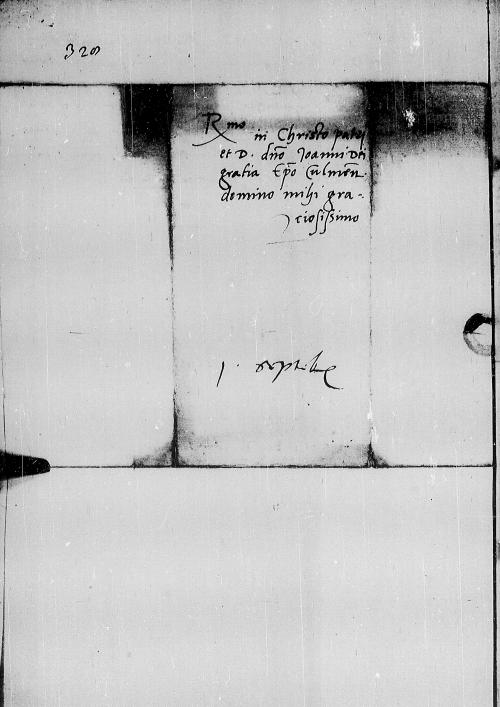 320
Rmo in Christo patri
et D. dno Joanni Dei
gratia Epo Culmen.
domino mihi gra-
ciosissimo
1. Septeb